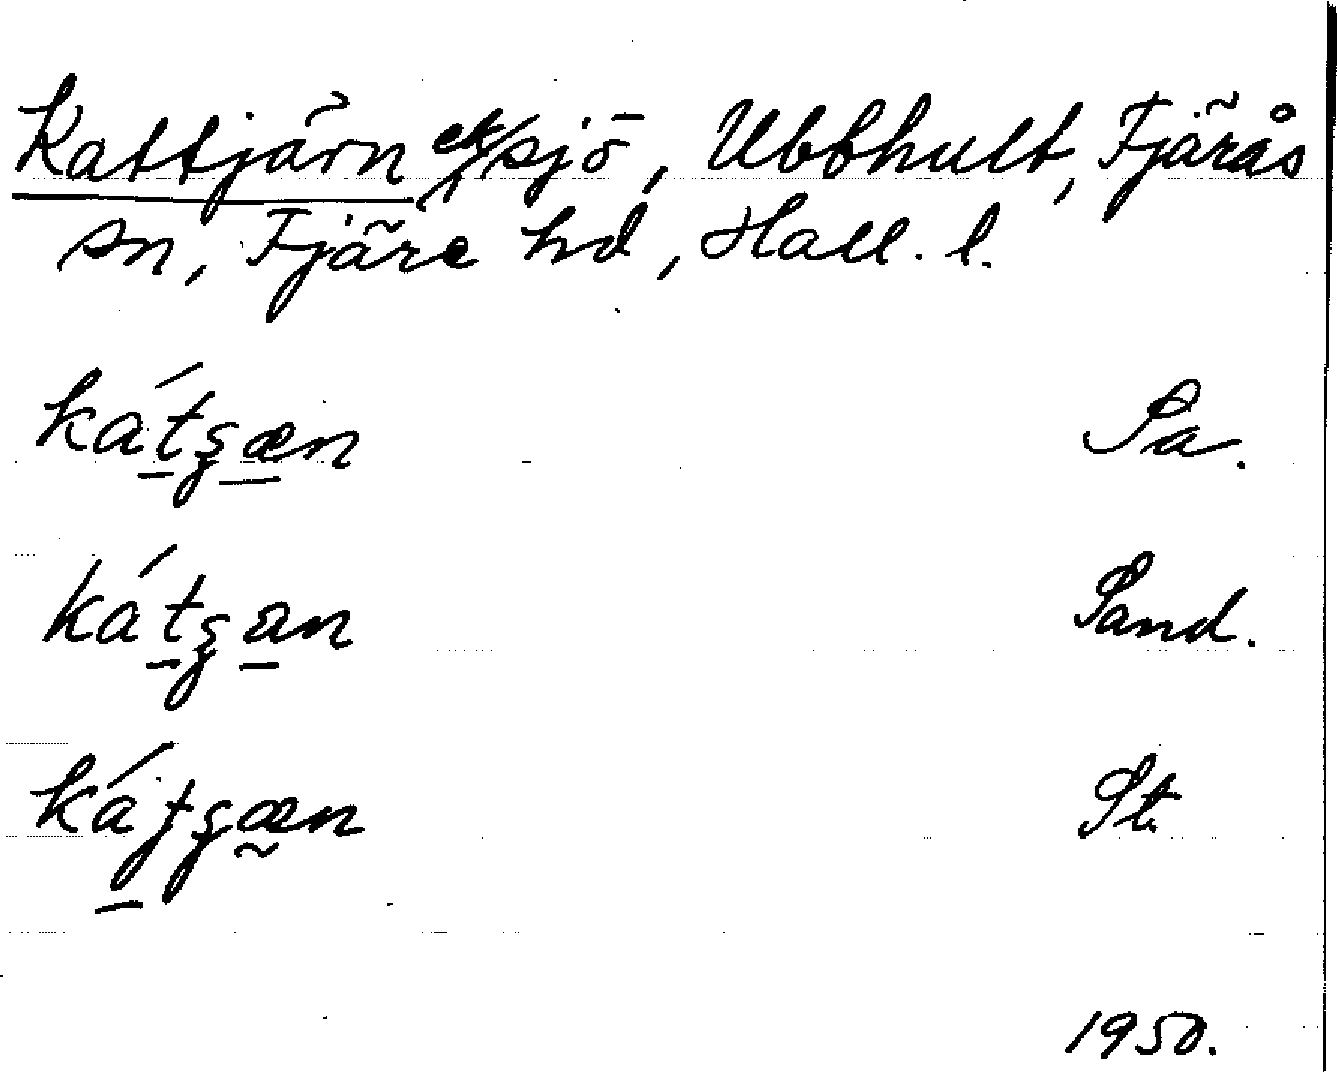 Kattjärn ek/sjö, Ubbhult, Fjärås
sn, Fjäre hd, Hall. l.
kátʒæn Sa.
kátʒan Sand.
kátʒæn St.
1950.